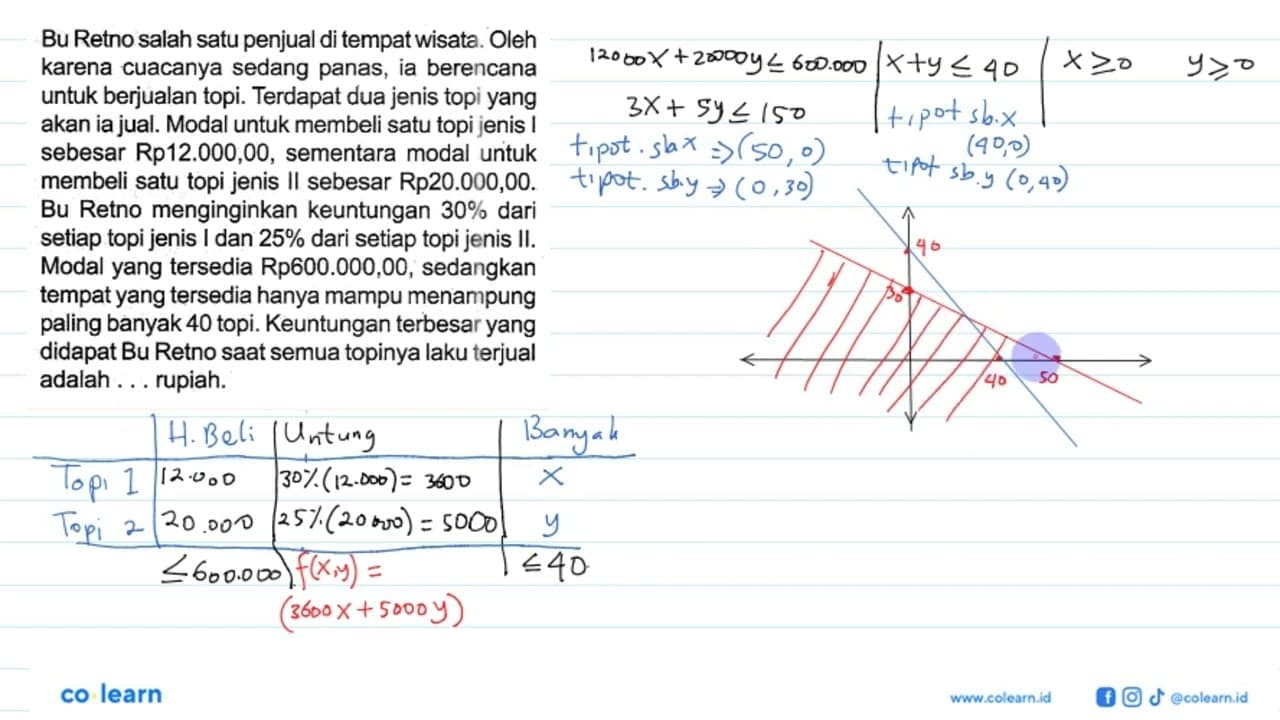 Bu Retno salah satu penjual di tempat wisata. Oleh
karena cuacanya sedang panas, ia berencana
untuk berjualan topi. Terdapat dua jenis topi yang
akan ia jual. Modal untuk membeli satu topi jenis I
sebesar Rp12.000,00, sementara modal untuk
membeli satu topi jenis II sebesar Rp20.000,00.
Bu Retno menginginkan keuntungan 30% dari
setiap topi jenis I dan 25% dari setiap topi jenis II.
Modal yang tersedia Rp600.000,00, sedangkan
tempat yang tersedia hanya mampu menampung
paling banyak 40 topi. Keuntungan terbesar yang
didapat Bu Retno saat semua topinya laku terjual
adalah . . . rupiah.
12000x + 20000y ≤ 600.000 | x + y ≤ 40 | x ≥ 0 y ≥ 0
3x + 5y ≤ 150
tipot sb.x
(40,0)
tipot sb.y (0,40)
tipot. sbx ⇒ (50,0)
tipot. sb.y ⇒ (0,30)
40
30
40 50
H. Beli Untung Banyak
Topi 1 12.000 30%(12.000) = 3600 x
Topi 2 20.000 25%(20000) = 5000 y
≤ 600.000 f(x,y) = ≤ 40
(3600x + 5000y)
co learn
www.colearn.id @colearn.id